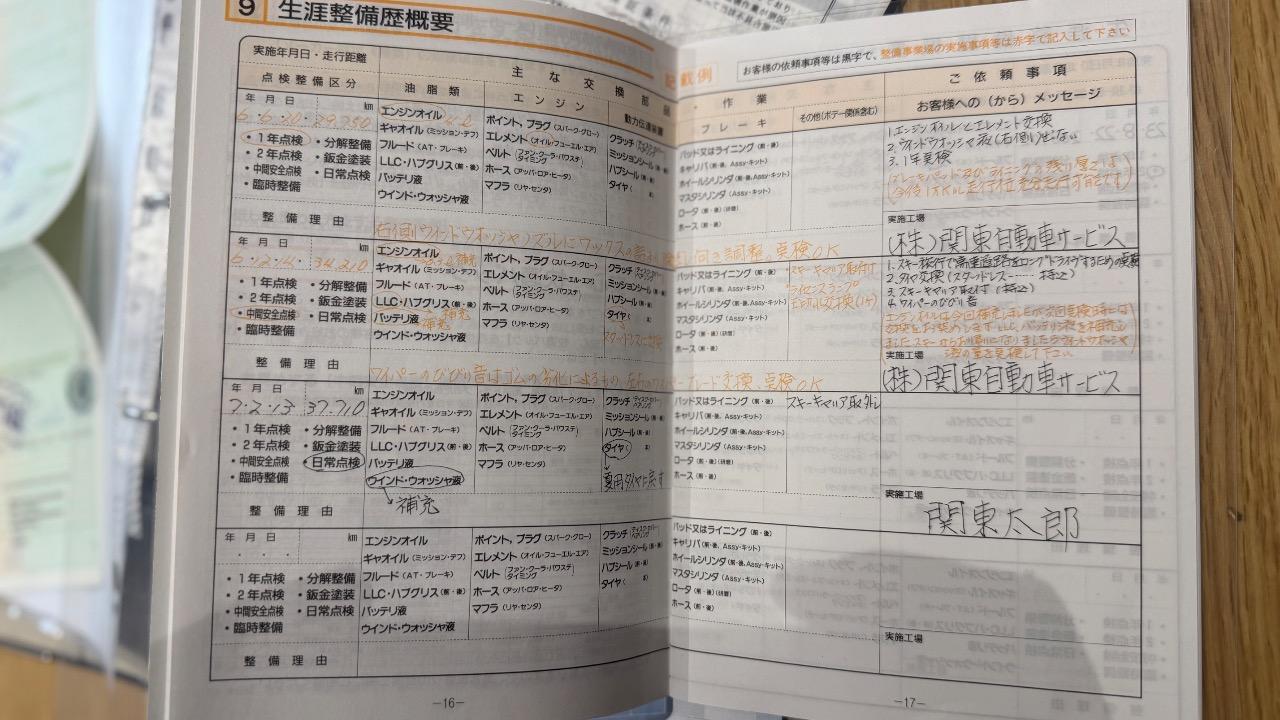 9 生涯整備歴概要
記載例
お客様の依頼事項等は黒字で、整備事業場の実施事項等は赤字で記入して下さい
実施年月日・走行距離
点検整備区分
主な交換部品・作業
油脂類
エンジン
動力伝達装置
ブレーキ
その他(ボデー関係含む)
ご依頼事項
お客様への(から)メッセージ
年 月 日 km
6・6・20 29,750
・1年点検 ・分解整備
・2年点検 ・鈑金塗装
・中間安全点検 ・日常点検
・臨時整備
エンジンオイル
ギャオイル(ミッション・デフ)
フルード(AT・ブレーキ)
LLC・ハブグリス(前・後)
バッテリ液
ウインド・ウォッシャ液
ポイント, プラグ(スパーク・グロー)
エレメント(オイル・フューエル・エア)
ベルト(ファン・クーラ・パワステ タイミング)
ホース(アッパ・ロア・ヒータ)
マフラ(リヤ・センタ)
クラッチ
ミッションシール(前・後)
ハブシール(前・後)
タイヤ( 本)
パッド又はライニング(前・後)
キャリパ(前・後, Assy・キット)
ホイールシリンダ(前・後, Assy・キット)
マスタシリンダ(Assy・キット)
ロータ(前・後)(研磨)
ホース(前・後)
1.エンジンオイルとエレメント交換
2.ウインドウオッシャ液(右側)出ない
3.1年点検
ブレーキパッド及びライニングの残り厚さは
実施工場
(株)関東自動車サービス
整備理由
右側ウインドウオッシャノズルにワックスの
向き調整、点検OK
年 月 日 km
6・12・4 34,210
・1年点検 ・分解整備
・2年点検 ・鈑金塗装
・中間安全点検 ・日常点検
・臨時整備
エンジンオイル
補充
ギャオイル(ミッション・デフ)
フルード(AT・ブレーキ)
LLC・ハブグリス(前・後)
補充
バッテリ液
補充
ウインド・ウォッシャ液
ポイント, プラグ(スパーク・グロー)
エレメント(オイル・フューエル・エア)
ベルト(ファン・クーラ・パワステ タイミング)
ホース(アッパ・ロア・ヒータ)
マフラ(リヤ・センタ)
クラッチ
ミッションシール(前・後)
ハブシール(前・後)
タイヤ( 本)
スタッドレスに交換
パッド又はライニング(前・後)
キャリパ(前・後, Assy・キット)
ホイールシリンダ(前・後, Assy・キット)
マスタシリンダ(Assy・キット)
ロータ(前・後)(研磨)
ホース(前・後)
スキーキャリア取付
ライセンスランプ
1.スキー旅行で高速道路をロングドライブするための点検
2.タイヤ交換(スタッドレス……持込)
3.スキーキャリア取付(持込)
4.ワイパーのびびり音
エンジンオイルは今回補充しましたが次回点検時には
交換をお奨めします。LLC、バッテリ液を補充し
ましたスキーからお帰りになりましたらウインドウオッシャ
液の量を点検して下さい
実施工場
(株)関東自動車サービス
整備理由
ワイパーのびびり音はゴムの劣化によるもの、左右のワイパーブレード交換、点検OK
年 月 日 km
7・2・13 37,710
・1年点検 ・分解整備
・2年点検 ・鈑金塗装
・中間安全点検 ・日常点検
・臨時整備
エンジンオイル
ギャオイル(ミッション・デフ)
フルード(AT・ブレーキ)
LLC・ハブグリス(前・後)
バッテリ液
ウインド・ウォッシャ液
補充
ポイント, プラグ(スパーク・グロー)
エレメント(オイル・フューエル・エア)
ベルト(ファン・クーラ・パワステ タイミング)
ホース(アッパ・ロア・ヒータ)
マフラ(リヤ・センタ)
クラッチ
ミッションシール(前・後)
ハブシール(前・後)
タイヤ( )
夏用タイヤに戻す
パッド又はライニング(前・後)
キャリパ(前・後, Assy・キット)
ホイールシリンダ(前・後, Assy・キット)
マスタシリンダ(Assy・キット)
ロータ(前・後)(研磨)
ホース(前・後)
スキーキャリア取外し
実施工場
関東太郎
整備理由
年 月 日 km
・1年点検 ・分解整備
・2年点検 ・鈑金塗装
・中間安全点検 ・日常点検
・臨時整備
エンジンオイル
ギャオイル(ミッション・デフ)
フルード(AT・ブレーキ)
LLC・ハブグリス(前・後)
バッテリ液
ウインド・ウォッシャ液
ポイント, プラグ(スパーク・グロー)
エレメント(オイル・フューエル・エア)
ベルト(ファン・クーラ・パワステ タイミング)
ホース(アッパ・ロア・ヒータ)
マフラ(リヤ・センタ)
クラッチ
ミッションシール(前・後)
ハブシール(前・後)
タイヤ( 本)
パッド又はライニング(前・後)
キャリパ(前・後, Assy・キット)
ホイールシリンダ(前・後, Assy・キット)
マスタシリンダ(Assy・キット)
ロータ(前・後)(研磨)
ホース(前・後)
実施工場
整備理由
―16―
―17―